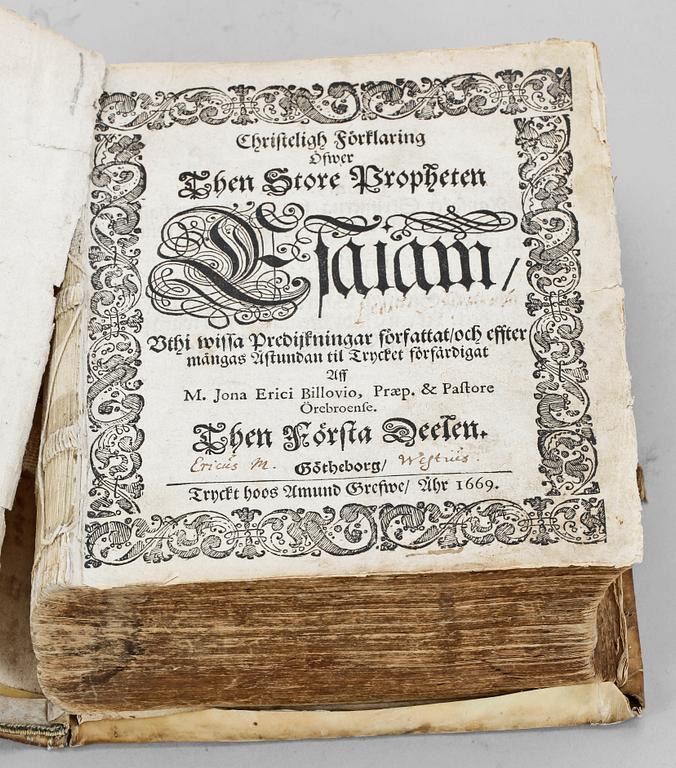 Christeligh Förklaring
Öfwer
Then Store Propheten
Esaiam/
Vthi wissa Predijkningar författat/och effter
mångas Åstundan til Trycket förfärdigat
Aff
M. Jona Erici Billovio, Præp. & Pastore
Örebroense.
Then Första Deelen.
Ericus M. Westiüs.
Götheborg/
Tryckt hoos Amund Grefwe/ Åhr 1669.